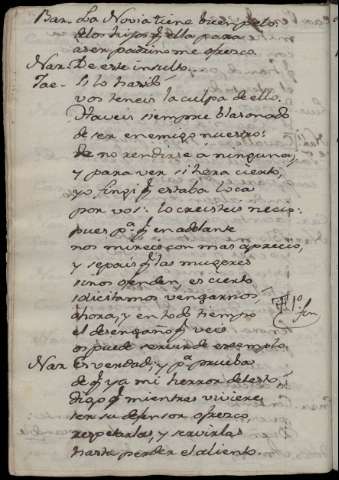 Bar. La Novia tiene buen pelo:
de los hijos q.e ella para
a ser padrino me ofrezco.
Nar. De este insulto.
Jac. Si lo hai
vos teneis la culpa de ello.
Haveis siempre blasonado
de ser enemigo nuestro:
de no rendirse a ninguna,
y para ver si hera cierto,
yo fingi q.e estaba loca
por vos: lo creisteis necio:
pues p.a q.e en adelante
nos mireis con mas aprecio,
y sepais q.e las mugeres
si nos ofenden, es cierto
solicitamos vengarnos,
ahora, y en todo tiempo
el desengaño q.e veis
os puede servir de exemplo.
1.o
fin
Nar. En verdad; y p.a prueba
de q.e ya mi herror detesto,
digo q.e mientras viviere
ser su defensor ofrezco,
respetarlas, y servirlas
hasta perder el aliento.